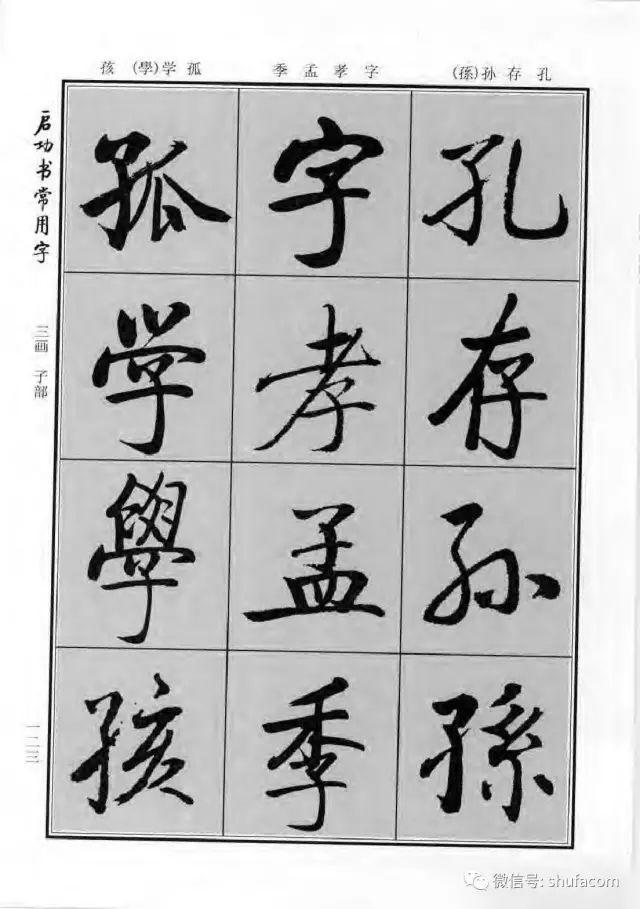 孩 (學)学 孤
季 孟 孝 字
(孫)孙 存 孔
启功书常用字
三画 子部
一二三
孔
存
孙
孫
字
孝
孟
季
孤
学
學
孩
微信号: shufacom